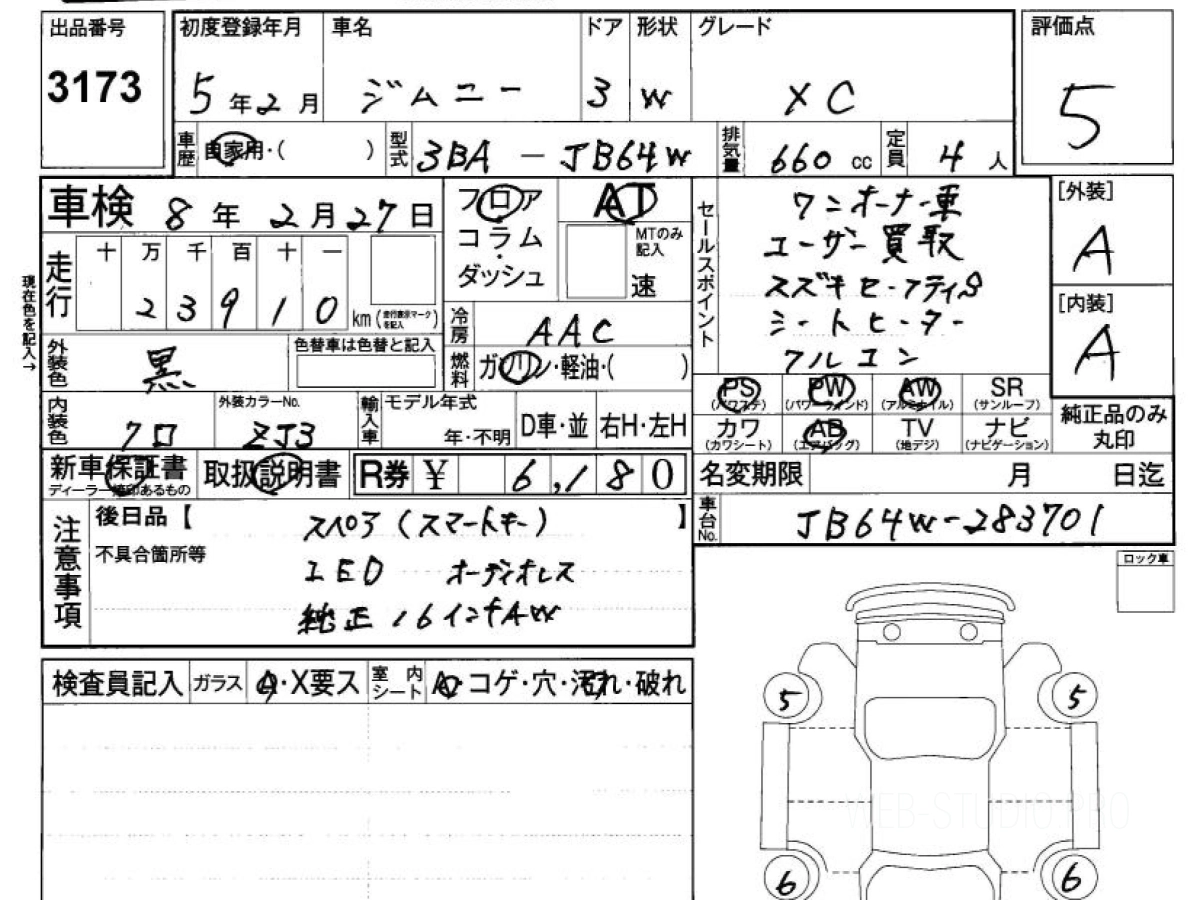 出品番号 初度登録年月 車名 ドア 形状 グレード 評価点
3173 5年2月 ジムニー 3 W XC 5
車歴 自家用・( ) 型式 3BA-JB64W 排気量 660cc 定員 4人
車検 8年2月27日 フロア AT
コラム MTのみ記入
ダッシュ 速
セールスポイント
ワンオーナー車
ユーザー買取
スズキセーフティS
シートヒーター
アルコン
[外装]
A
[内装]
A
現在色を記入→
走行 十 万 千 百 十 一
2 3 9 1 0 km (走行表示マークを記入)
冷房 AAC
外装色 黒 色替車は色替と記入
燃料 ガソリン・軽油・( )
PS PW AW SR
(パワステ) (パワーウィンド) (アルミホイル) (サンルーフ)
カワ AB TV ナビ
(カワシート) (エアバッグ) (地デジ) (ナビゲーション)
純正品のみ
丸印
内装色 クロ 外装カラーNo. ZJ3 輸入車 モデル年式 年・不明 D車・並 右H・左H
新車保証書 取扱説明書 R券 ¥ 6,180
ディーラー捺印あるもの
名変期限 月 日迄
車台No. JB64W-283701
注意事項
後日品【 スペア(スマートキー) 】
不具合箇所等
LED オーディオレス
純正16インチAW
ロック車
検査員記入 ガラス A・X要ス 室内シート A・コゲ・穴・汚れ・破れ
5 5
WEB-STUDIO.PRO
6 6